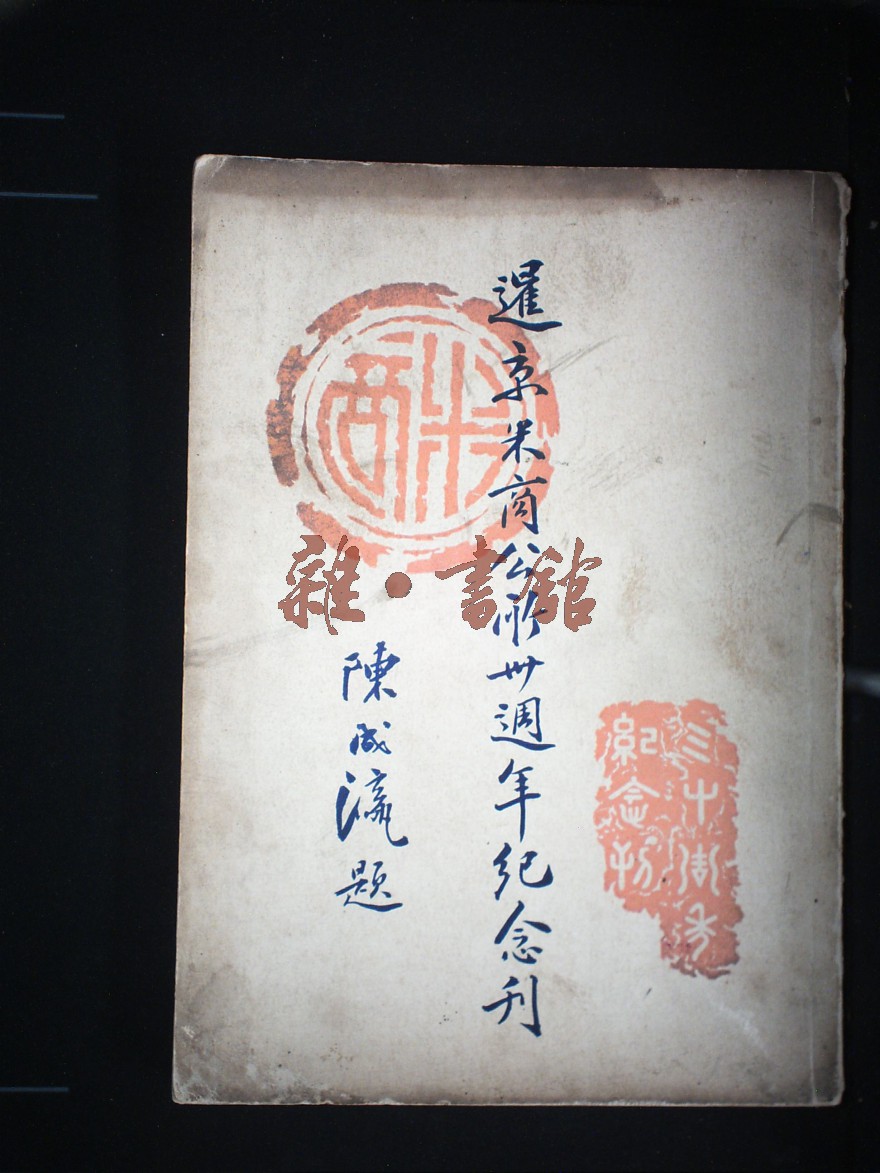 暹京米商公所卅週年紀念刊
陳成瀛題
米商
三十周年
紀念刊
雜·書館